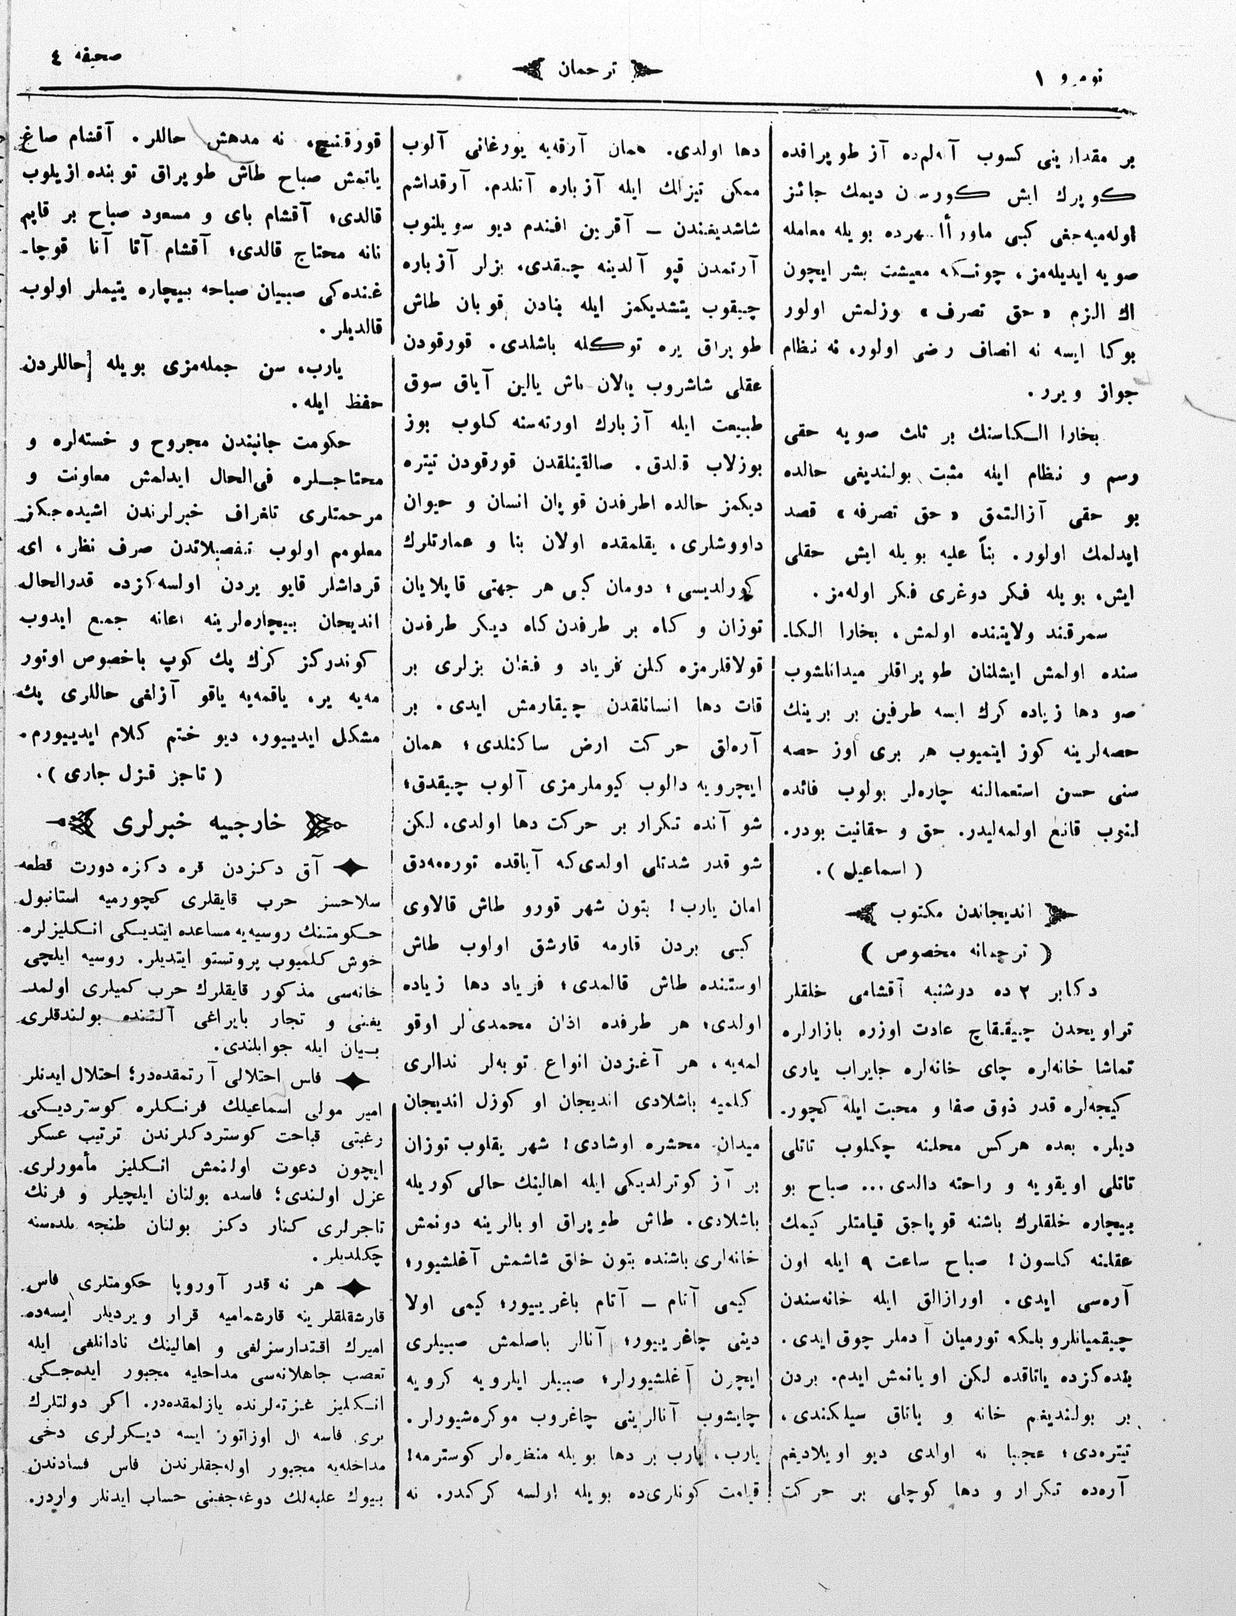 نومرو ١
ترجمان
صحيفه ٤
بر مقدارينى كسوب آنلرده آز طوپراقده
كوپرك ايش كورسن ديمك جائز
اولهميهجغى كبى ماورأالنهرده بويله معامله
صويه ايديلهمز، چونكه معيشت بشر ايچون
اك الزم «حق تصرف» وزلمش اولور
بوكا ايسه نه انصاف رضى اولور، نه نظام
جواز ويرر.
بخارا الكاسنك بر ثلث صويه حقى
رسم و نظام ايله مثبت بولنديغى حالده
بو حقى آزالتمق «حق تصرفه» قصد
ايدلمك اولور. بنأ عليه بويله ايش حقلى
ايش، بويله فكر دوغرى فكر اولهمز.
سمرقند ولايتنده اولمش، بخارا الكا-
سنده اولمش ايشلنان طوپراقلر ميدانلشوب
صو دها زياده كرك ايسه طرفين بر برينك
حصهلرينه كوز ايتميوب هر برى اوز حصه
سنى حسن استعمالنه چارهلر بولوب فائده
لنوب قانع اولمهليدر. حق و حقانيت بودر.
(اسماعيل).
انديجاندن مكتوب
(ترجمانه مخصوص)
دكابر ٢ ده دوشنبه آقشامى خلقلر
تراويحدن چيقيقاچ عادت اوزره بازارلره
تماشا خانهلره چاى خانهلره جايراب يارى
كيجهلره قدر ذوق صفا و محبت ايله كچور-
ديلر. بعده هركس محلنه چكلوب تاتلى
تاتلى اويقويه و راحته دالدى... صباح بو
بيچاره خلقلرك باشنه قوپاجق قيامتلر كيمك
عقلنه كلسون! صباح ساعت ٩ ايله اون
آرهسى ايدى. اورازالق ايله خانهسندن
چيقميانلر و بلكه تورميان آدملر چوق ايدى.
بندهكزده ياتاقده لكن اويانمش ايدم. بردن
بر بولنديغم خانه و ياتاق سيلكندى،
تيترهدى؛ عجبا نه اولدى ديو اويلاديغم
آرهده تكرار و دها كوچلى بر حركت
دها اولدى. همان آرقهيه يورغانى آلوب
ممكن تيزلك ايله آزباره آتلدم. آرقداشم
شاشديغندن — آقرين افندم ديو سويلنوب
آرتمدن قپو آلدينه چيقدى. بزلر آزباره
چيقوب يتشديكمز ايله بنادن قوپان طاش
طوپراق يره توكلمه باشلدى. قورقودن
عقلى شاشروب يالان باش يالين آياق سوق
طبيعت ايله آزبارك اورتهسنه كلوب بوز
بوزلاب قلدق. صالقينلقدن قورقودن تيتره
ديكمز حالده اطرفدن قوپان انسان و حيوان
داووشلرى، يقلمقده اولان بنا و عمارتلرك
كورلديسى؛ دومان كبى هر جهتى قاپلايان
توزان و كاه بر طرفدن كاه ديكر طرفدن
قولاقلرمزه كلن فرياد و فغان بزلرى بر
قات دها انسانلقدن چيقارمش ايدى. بر
آرهلق حركت ارض ساكنلدى؛ همان
ايچرويه دالوب كيوملرمزى آلوب چيقدق؛
شو آنده تكرار بر حركت دها اولدى. لكن
شو قدر شدتلى اولدىكه آياقده تورهمهدق
امان يارب! بتون شهر قورو طاش قالاوى
كبى بردن قارمه قارشق اولوب طاش
اوستنده طاش قالمدى؛ فرياد دها زياده
اولدى؛ هر طرفده اذان محمدىلر اوقو
لمهيه، هر آغزدن انواع توبهلر ندالرى
كلميه باشلادى انديجان او كوزل انديجان
ميدان محشره اوشادى! شهر يقلوب توزان
بر آز كوترلديكى ايله اهالينك حالى كوريله
باشلادى. طاش طوپراق اوبالرينه دونمش
خانهلرى باشنده بتون خلق شاشمش آغلشيور؛
كيمى آنام — آتام باغريبيور؛ كيمى اولا
دينى چاغريبيور؛ آنالر باصلمش صبيلرى
ايچون آغلشيورلر؛ صبيلر ايلرويه كرويه
چاپشوب آنالرينى چاغروب موكرهشيورلر.
يارب، يارب بر دها بويله منظرهلر كوسترمه!
قيامت كونلرىده بويله اولسه كركدر. نه
قورقنچ، نه مدهش حاللر. آقشام صاغ
ياتمش صباح طاش طوپراق توبنده ازيلوب
قالدى؛ آقشام باى و مسعود صباح بر قاپم
نانه محتاج قالدى؛ آقشام آتا آنا قوچا-
غندهكى صبيان صباحه بيچاره يتيملر اولوب
قالديلر.
يارب، سن جملهمزى بويله حاللردن
حفظ ايله.
حكومت جانبندن مجروح و خستهلره و
محتاجلره فىالحال ايدلمش معاونت و
مرحمتلرى تلغراف خبرلرندن اشيدهجككز
معلومم اولوب تفصيلاتدن صرف نظر، اى
قرداشلر قايو يردن اولسهكزده قدرالحال
انديجان بيچارهلرينه اعانه جمع ايدوب
كوندركز كرك پك كوپ باخصوص اوتور
مهيه ير، ياقمهيه ياقو آزلغى حاللرى پك
مشكل ايديبور، ديو ختم كلام ايديبورم.
(تاجز قزل جارى).
خارجيه خبرلرى
آق دكزدن قره دكزه دورت قطعه
سلاحسز حرب قايقلرى كچورميه استانبول
حكومتنك روسيهيه مساعده ايتديكى انكليزلره
خوش كلميوب پروتستو ايتديلر. روسيه ايلچى
خانهسى مذكور قايقلرك حرب كميلرى اولمد-
يغنى و تجار بايراغى آلتنده بولندقلرى
بيان ايله جوابلندى.
فاس احتلالى آرتمقدهدر؛ احتلال ايدنلر
امير مولى اسماعيلك فرنكلره كوسترديكى
رغبتى قباحت كوستردكلرندن ترتيب عسكر
ايچون دعوت اولنمش انكليز مأمورلرى
عزل اولندى؛ فاسده بولنان ايلچيلر و فرنك
تاجرلرى كنار دكز بولنان طنجه بلدهسنه
چكلديلر.
هر نه قدر آوروپا حكومتلرى فاس
قارشقلقلرينه قارشماميه قرار ويرديلر ايسهده
اميرك اقتدارسزلغى و اهالينك نادانلغى ايله
تعصب جاهلانهسى مداحليه مجبور ايدهجكى
انكليز غزتهلرنده يازلمقدهدر. اكر دولتلرك
برى فاسه ال اوزاتور ايسه ديكرلرى دخى
مداخلهيه مجبور اولهجقلرندن فاس فسادندن
بيوك عليهلك دوغهجغنى حساب ايدنلر واردر.